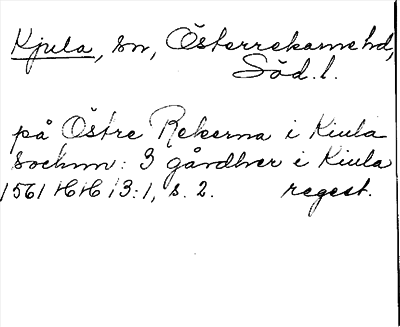 Kjula, sn, Österrekarne hd,
Söd.l.
på Östre Rekerna i Kiula
sochnn: 3 gårdher i Kiula
1561 HH 13:1, s. 2. regest.